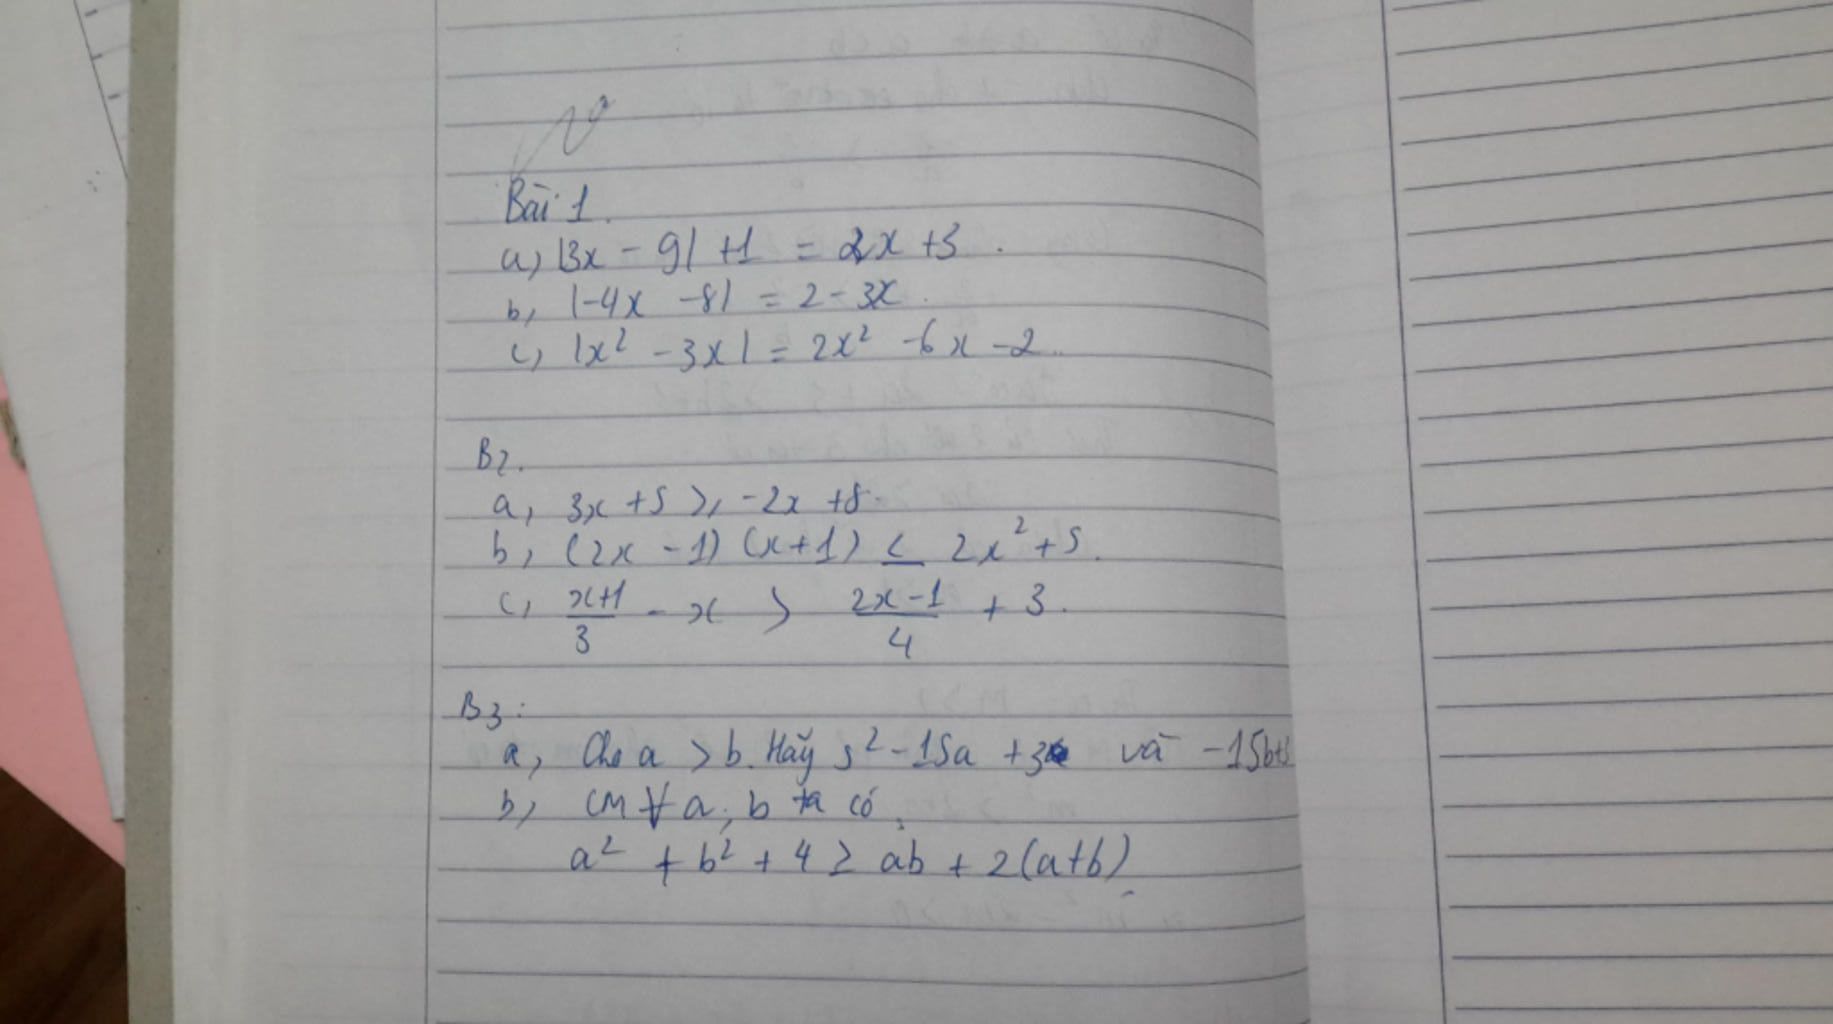 Bài 1.
a, |3x - 9| + 1 = 2x + 3.
b, |-4x - 8| = 2 - 3x.
c, |x² - 3x| = 2x² - 6x - 2.
B2.
a, 3x + 5 ≥ -2x + 8.
b, (2x - 1) (x + 1) ≤ 2x² + 5.
c, \frac{x+1}{3} - x > \frac{2x-1}{4} + 3.
B3:
a, Cho a > b. Hãy s² -15a + 3 và -15b+3
b, CM ∀ a, b ta có
a² + b² + 4 ≥ ab + 2(a+b)